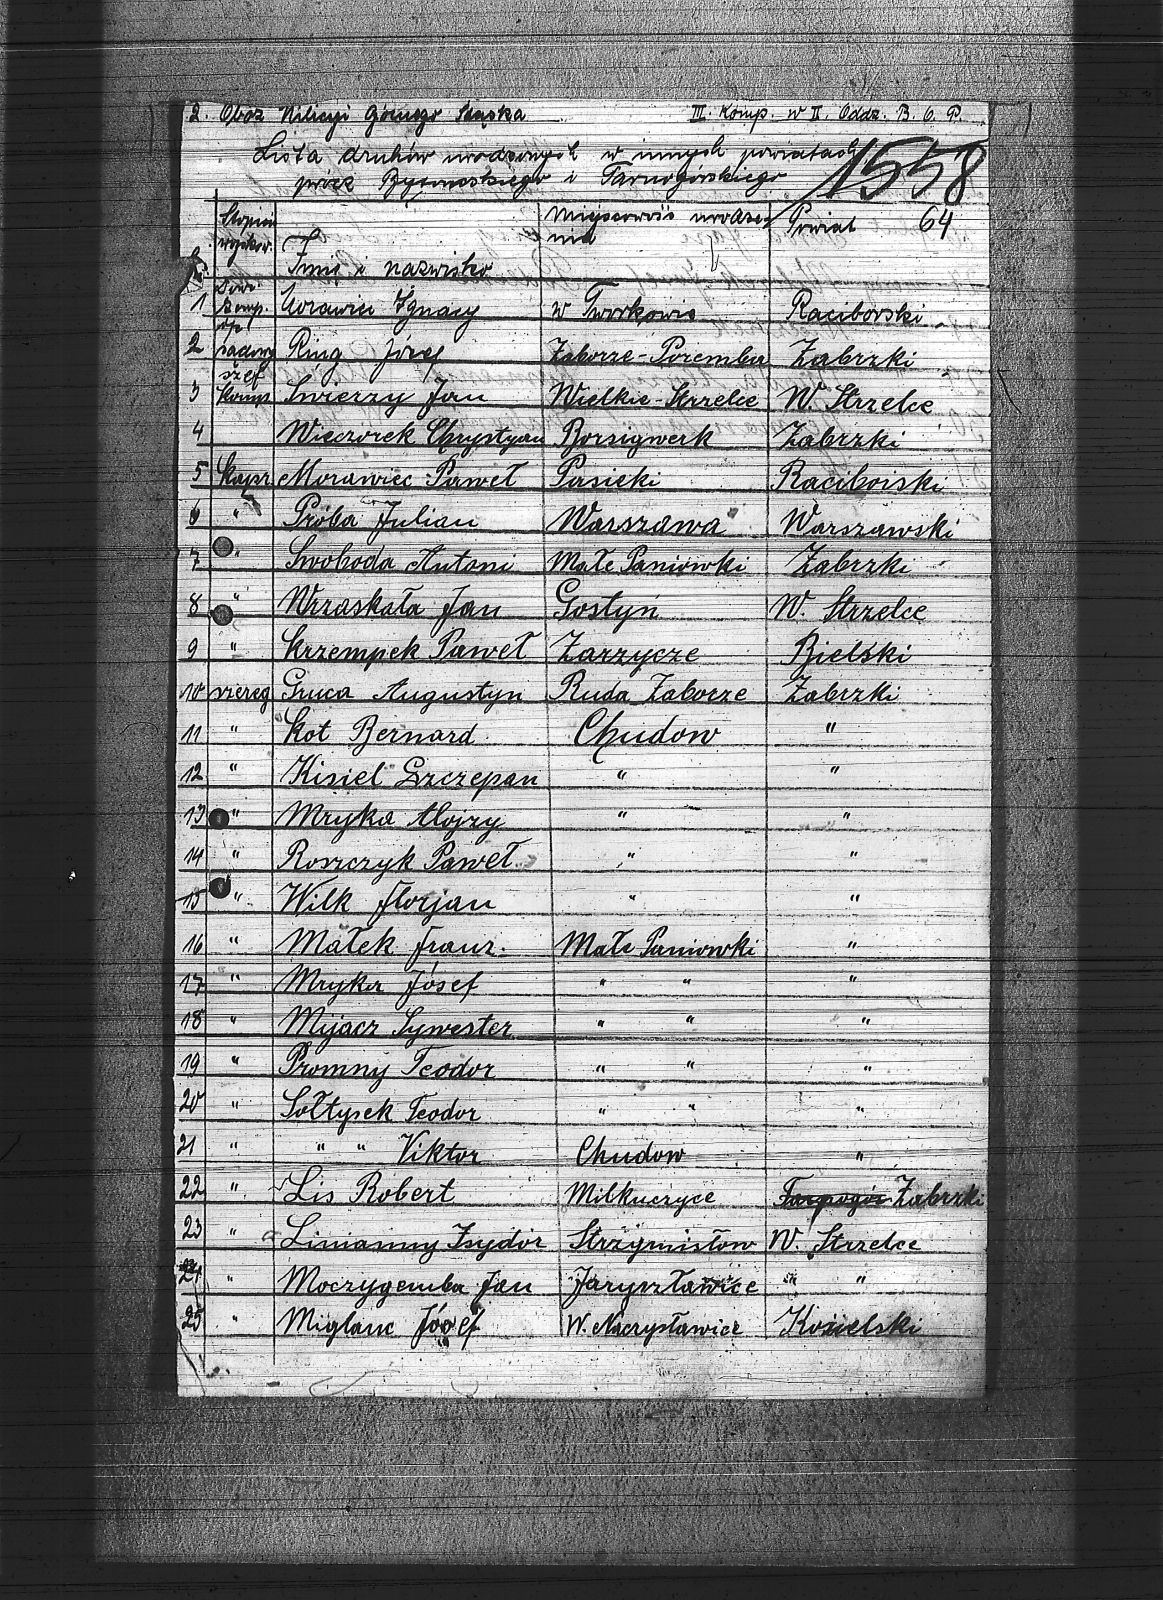 2. Obóz Milicyi Górnego Śląska III. Komp. w II. Oddz. B. O. P.
Lista druhów urodzonych w innych powiatach
prócz Bytomskiego i Tarnogórskiego
1558
64
Stopień wojskow. Imię i nazwisko Miejscowość urodzenia Powiat
1 Dow. komp. Ignacy w Tworkowie Raciborski
2 Ring Józef Zaborze-Poremba Zabrzki
3 szef komp Swierzy Jan Wielkie-Strzelce W. Strzelce
4 Wieczorek Chrystyan Borsigwerk Zabrzki
5 Kapr. Morawiec Paweł Pasieki Raciborski
6 " Próba Julian Warszawa Warszawski
7 " Swoboda Antoni Małe Paniowki Zabrzki
8 " Wraskała Jan Gostyń W. Strzelce
9 " Krzempek Paweł Zarzycze Bielski
10 szereg Gnica Augustyn Ruda Zaborze Zabrzki
11 " Kot Bernard Chudow "
12 " Kisiel Szczepan " "
13 " Mryka Alojzy " "
14 " Roszczyk Paweł " "
15 " Wilk Florjan " "
16 " Małek Franz. Małe Paniowki "
17 " Mryka Józef " " "
18 " Mijacz Sywester " " "
19 " Promny Teodor " " "
20 " Sołtysek Teodor " " "
21 " " " Viktor Chudow "
22 " Lis Robert Milkuczyce Zabrzki
23 " Lisiasny Isydor Strzymisłow W. Strzelce
24 " Moczygemba Jan Jaryszławice " "
25 " Miglanc Józef W. Naczysławice Kozielski